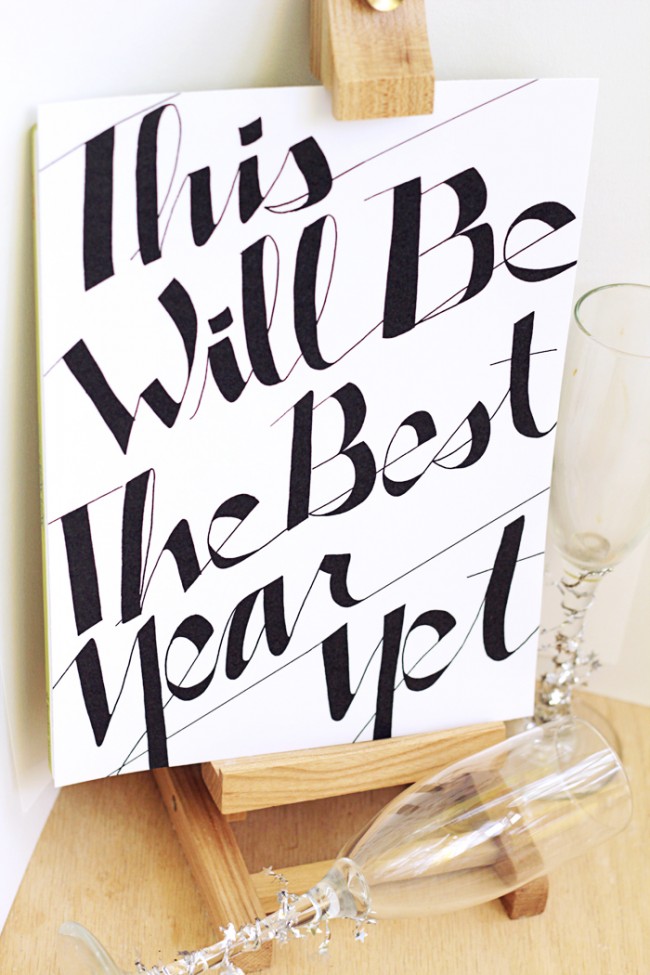 This
Will Be
The Best
Year
Yet